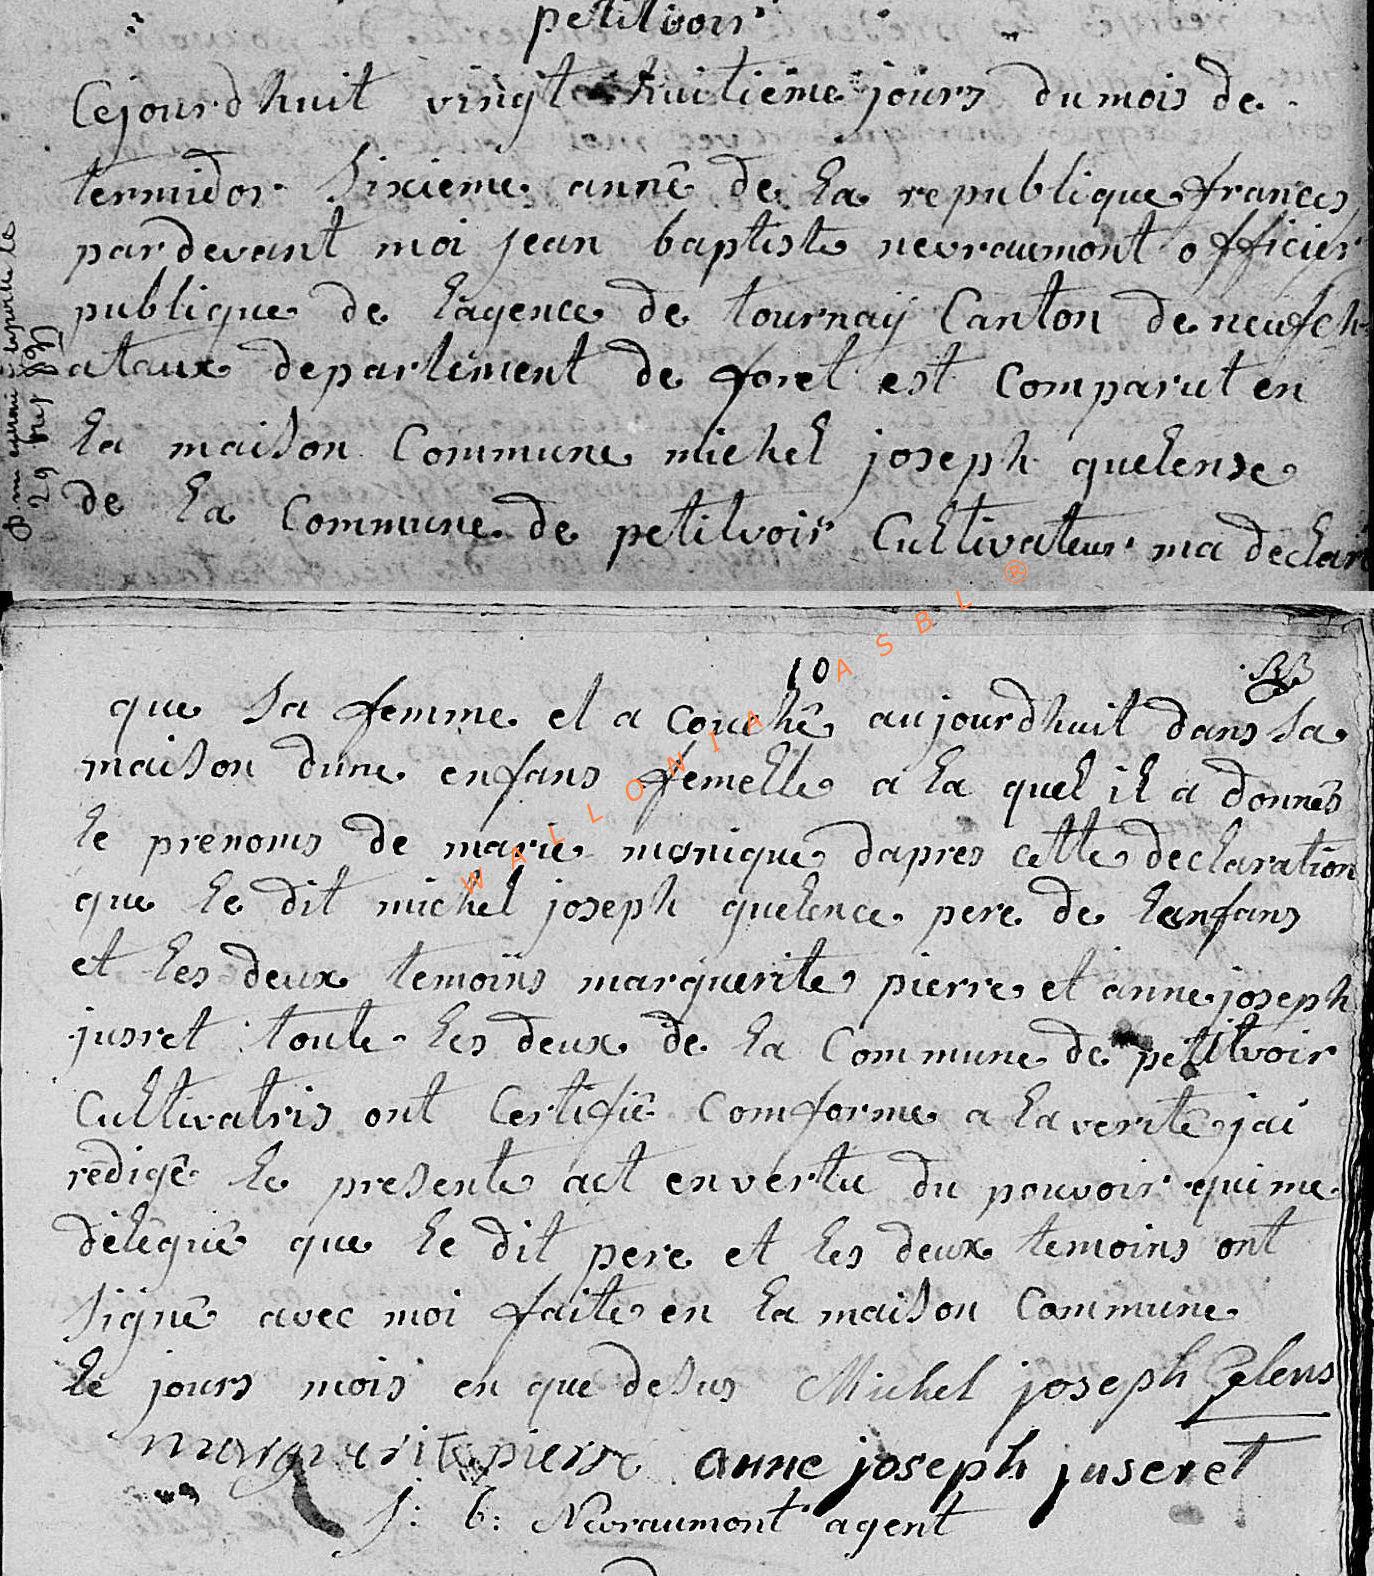 petitvoir
Cejourdhuit vingt huitiême jours dumois de
termidor Sixieme annê de la republique frances
pardevant moi jean baptiste nevraumont officier
publique de lagence de tournaÿ Canton de neufch
ataux departement de foret est Comparut en
la maison Commune michel joseph quelense
de la Commune de petitvoir Cultivateur ma declar
29
10
que sa femme et a couchê aujourdhuit dans sa
maison dune enfans femelle a la quel il a donnês
le prenoms de marie monique dapres cette declaration
que le dit michel joseph quelence pere de lenfans
et les deux temoins marguerite pierre et anne joseph
jusret toute les deux de la Commune de petitvoir
Cultivatris ont Certifiê Comforme a la veritê jai
redigê le presente act envertu du pouvoir quime
dêlêguê que le dit pere et les deux temoins ont
signê avec moi faite en la maison Commune
le jours mois en que desus Michel joseph Gelens
marguerite pierre anne joseph juseret
J: b: Nevraumont agent
WALLONIA ASBL ®